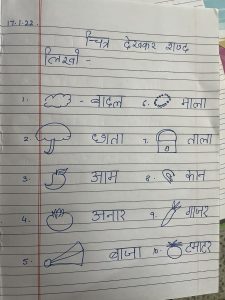 17-1-22
चित्र देखकर शब्द
लिखो -
1. - बादल 6. माला
2. छाता 7. ताला
3. आम 8. कान
4. अनार 9. गाजर
5. बाजा 10. टमाटर